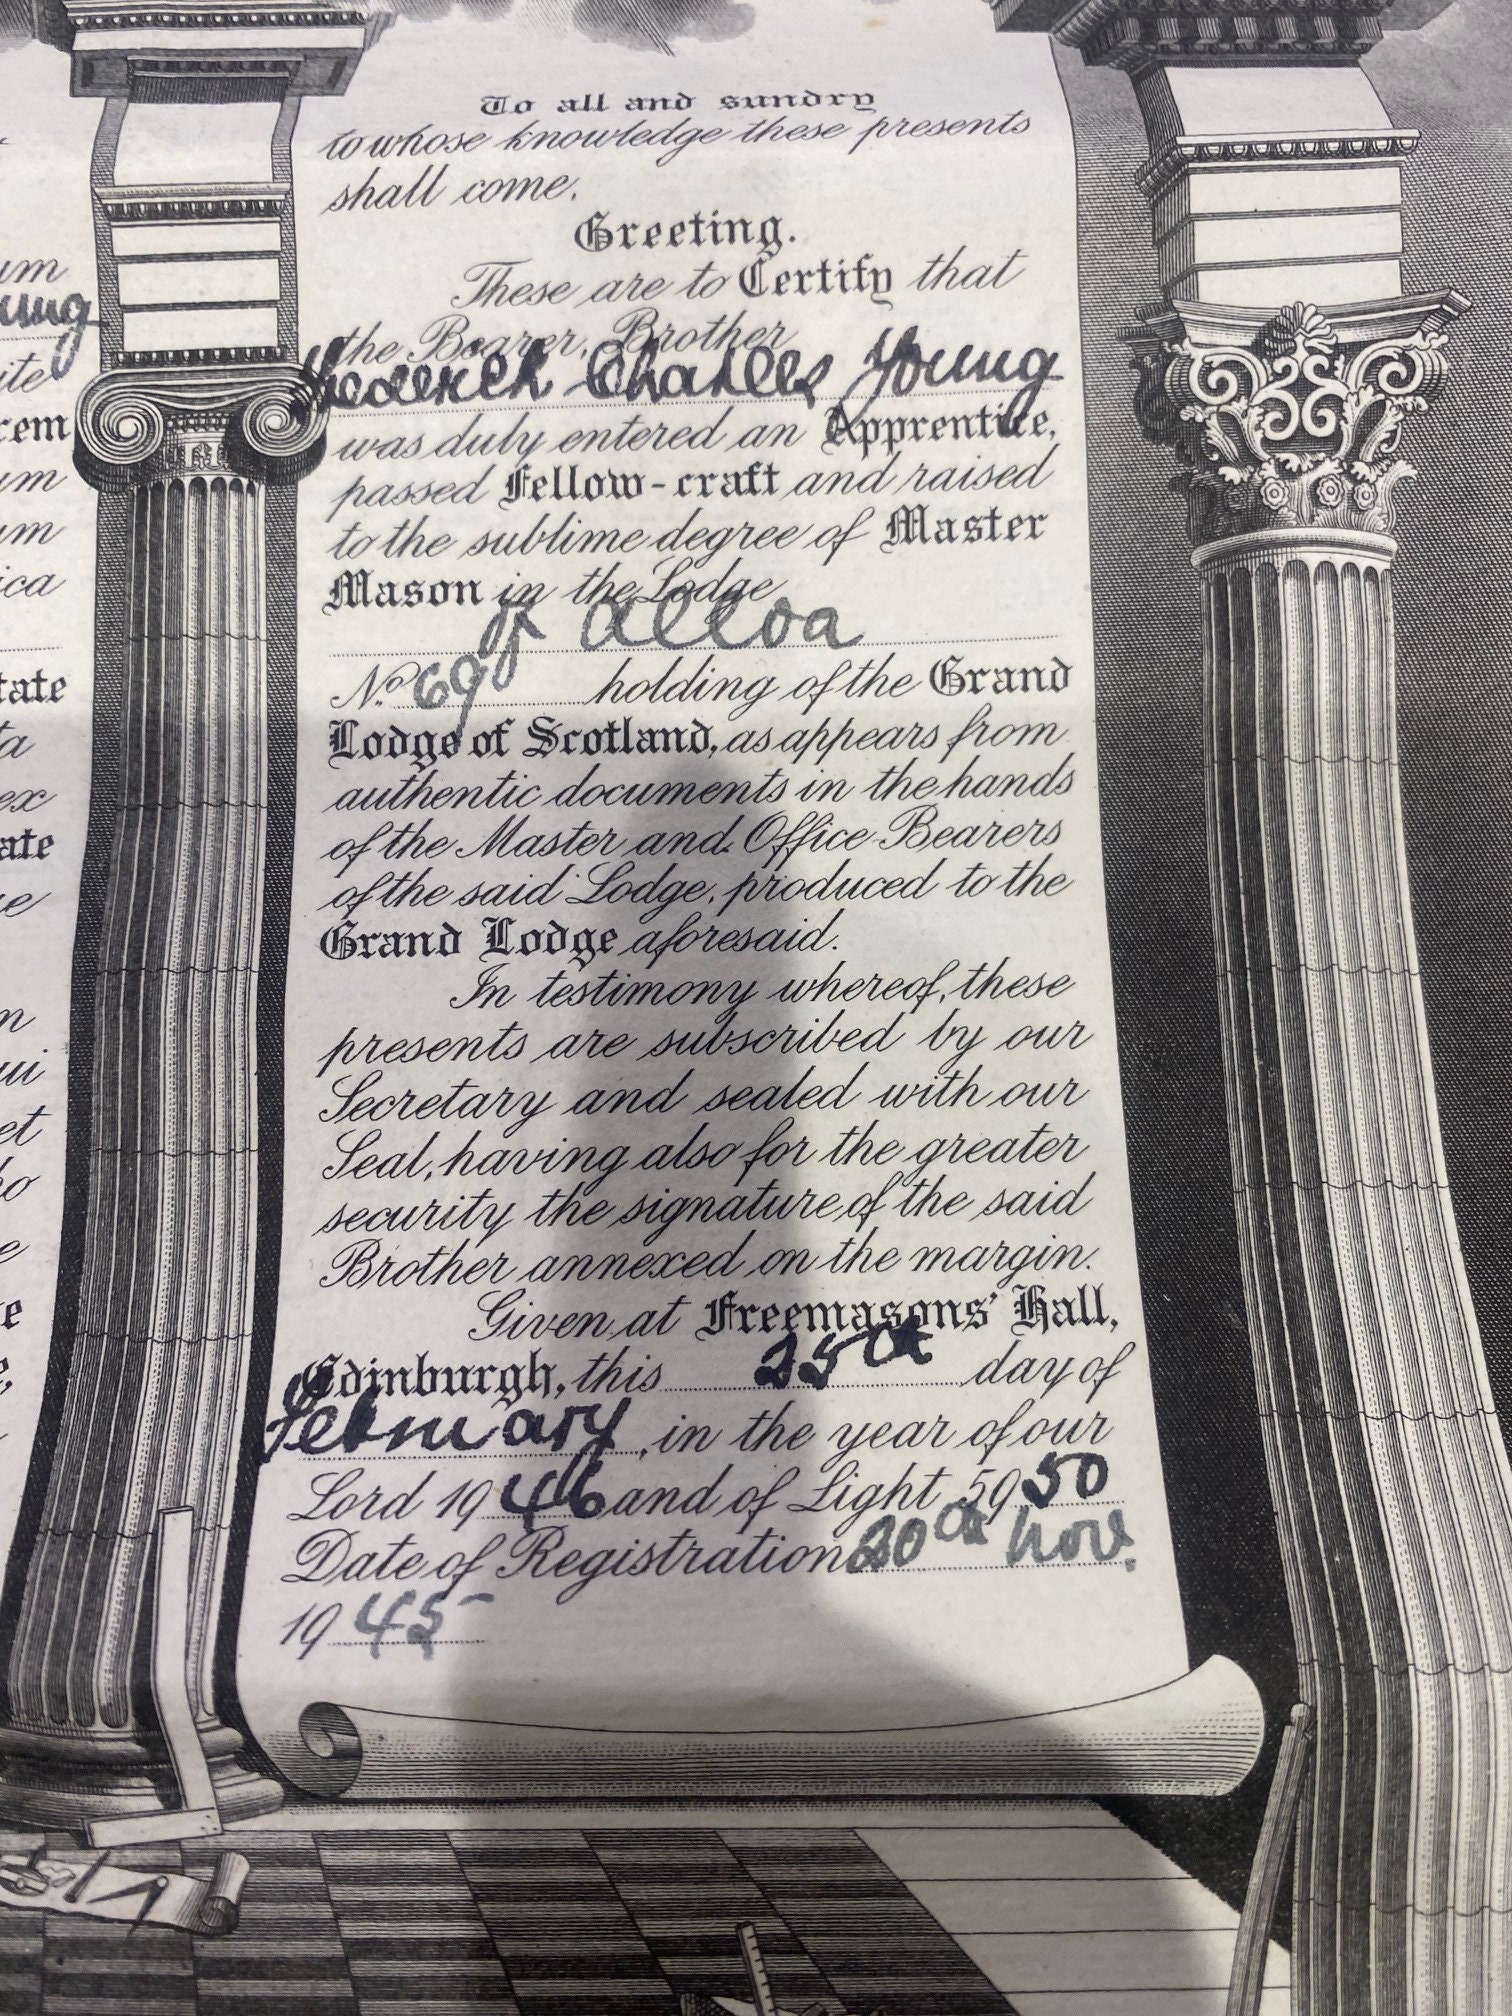 To all and sundry
to whose knowledge these presents
shall come,
Greeting.
These are to Certify that
the Bearer, Brother
Frederick Charles Young
was duly entered an Apprentice,
passed Fellow-craft and raised
to the sublime degree of Master
Mason in the Lodge
of Alloa
No. 69 holding of the Grand
Lodge of Scotland, as appears from
authentic documents in the hands
of the Master and Office-Bearers
of the said Lodge, produced to the
Grand Lodge aforesaid.
In testimony whereof, these
presents are subscribed by our
Secretary and sealed with our
Seal, having also for the greater
security the signature of the said
Brother annexed on the margin.
Given at Freemasons' Hall,
Edinburgh, this 25th day of
February, in the year of our
Lord 1946 and of Light 5950
Date of Registration 20th Nov.
1945